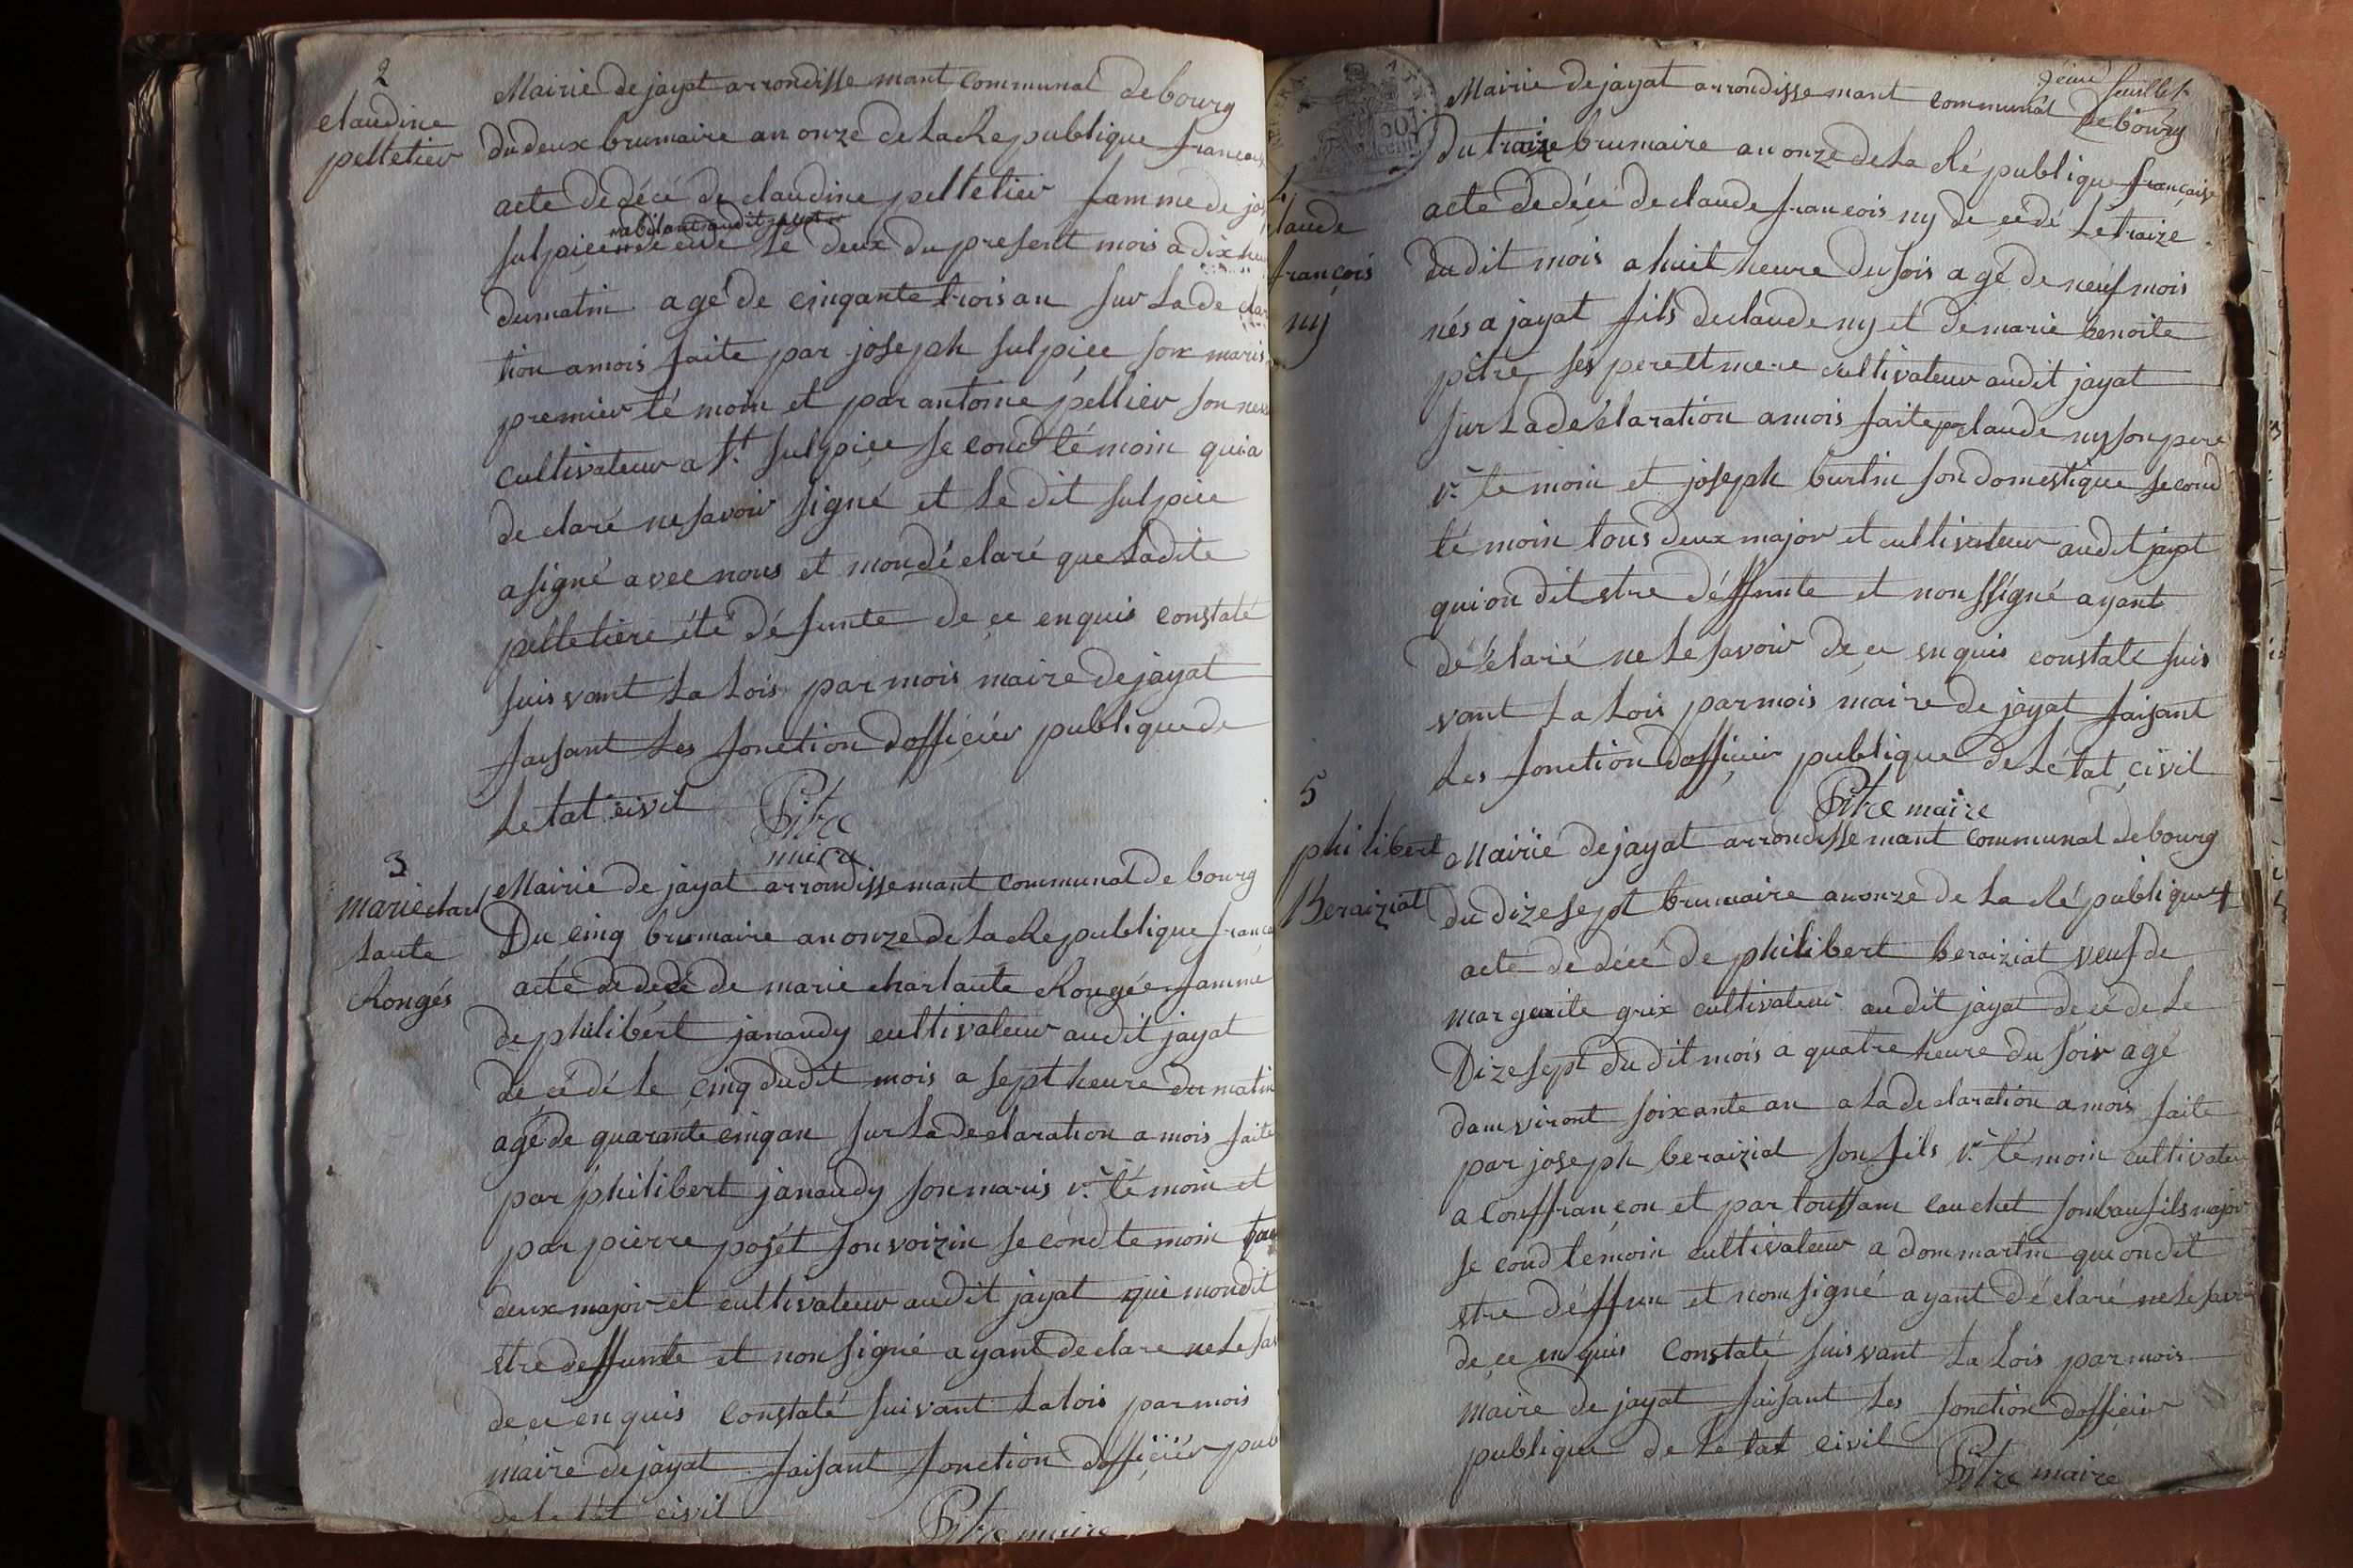 2
claudine
pelletier
Mairie de jayat arrondisse mant communal de bourg
du deux brumaire an onze de la Republique francais
acte de décé de claudine pelletier famme de jos
habitant audit jayat
sulpice de cede le deux du present mois a dix heu
du matin agé de cinqante trois an sur la de clar
tion a mois faite par joseph sulpice son maris
premier té moin et par antoine pellier son neve
cultivateur a St sulpice se cond té moin qui a
de claré ne savoir signé et le dit sulpice
a signé avec nous et mon dé claré que ladite
pelletiere été dé funte de ce enquis constaté
suis vant la lois par mois maire de jayat
faisant les fonction dofficiér publique de
le tat civil Pitre
maire
3
marie char
laute
Rongés
Mairie de jayat arrondissemant communal de bourg
Du cinq brumaire an onze de la Republique franca
acte de décé de marie charlaute Rongée famme
de philibért janaudy cultivateur audit jayat
de cé dé le cinq dudit mois a sept heure du matin
agé de quarante cinq an sur la declaration a mois faite
par philibert janaudy son maris 1r té moin et
par pierre pojét son voizin se cond te moin tou
deux major et cultivateur audit jayat qui mon dit
estre deffunte et non signé ayant declare ne le sav
de ce en quis constaté suivant la lois par mois
maire de jayat faisant fonction dofficiér pub
de le tét civil Pitre maire
9eime feuillet
Mairie de jayat arrondisse mant communal de bourg
4
laude
françois
nij
Du traize brumaire an onze de la Ré publique française
acte de décé de claude francois nij de cedé le traize
du dit mois a huit heure du soir a gé de neuf mois
nés a jayat fils de claude nij et de marie benoite
pitre ses pere et mere cultivateur audit jayat
sur la de claration a mois faite par claude nij son pere
1r te moin et joseph burtin son domestique second
té moin tous deux major et cultivateur audit jayat
qui on dit estre déffunte et non ssigné ayant
dé claré ne le savoir de ce en quis constaté suis
vant la lois par mois maire de jayat faisant
les fonction dofficier publique de lé tat civil
Pitre maire
5
philibert
Beraiziat
Mairie de jayat arrondissemant communal de bourg
du dizesept brumaire an onze de la Ré publique +
acte de décé de philibert beraiziat veuf de
marguerite grix cultivateur audit jayat de cé de le
Dizesept dudit mois a quatre heure du soir agé
danviront soixante an a la declaration a mois faite
par joseph beraiziat son fils 1r té moin cultivateur
a Conffrançon et par toussam cauchet son baufils major
se cond temoin cultivateur a dommartin qui on dit
estre déffun et non signé ayant dé claré ne le savoir
de ce en quis constaté suis vant la lois par mois
maire de jayat faisant les fonction dofficier
publique de le tat civil Pitre maire